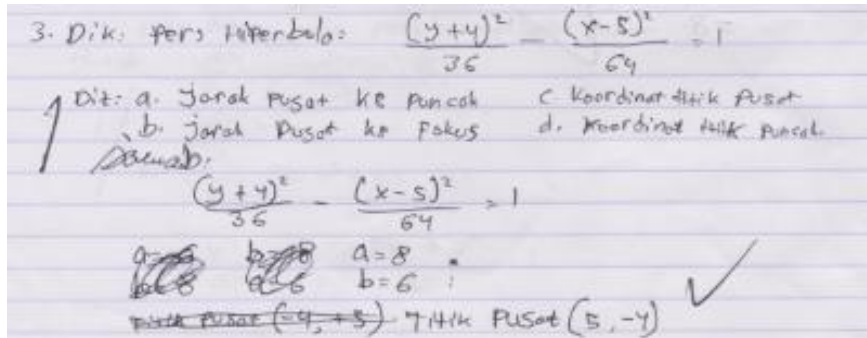 3. Dik: pers Hiperbola: (y+4)²/36 - (x-5)²/64 = 1
Dit: a. Jarak pusat ke puncak c. Koordinat titik pusat
b. jarak pusat ke Fokus d. Koordinat titik puncak
Jawab:
(y+4)²/36 - (x-5)²/64 = 1
a=8
b=6
Titik pusat (-4, +5) Titik Pusat (5, -4)